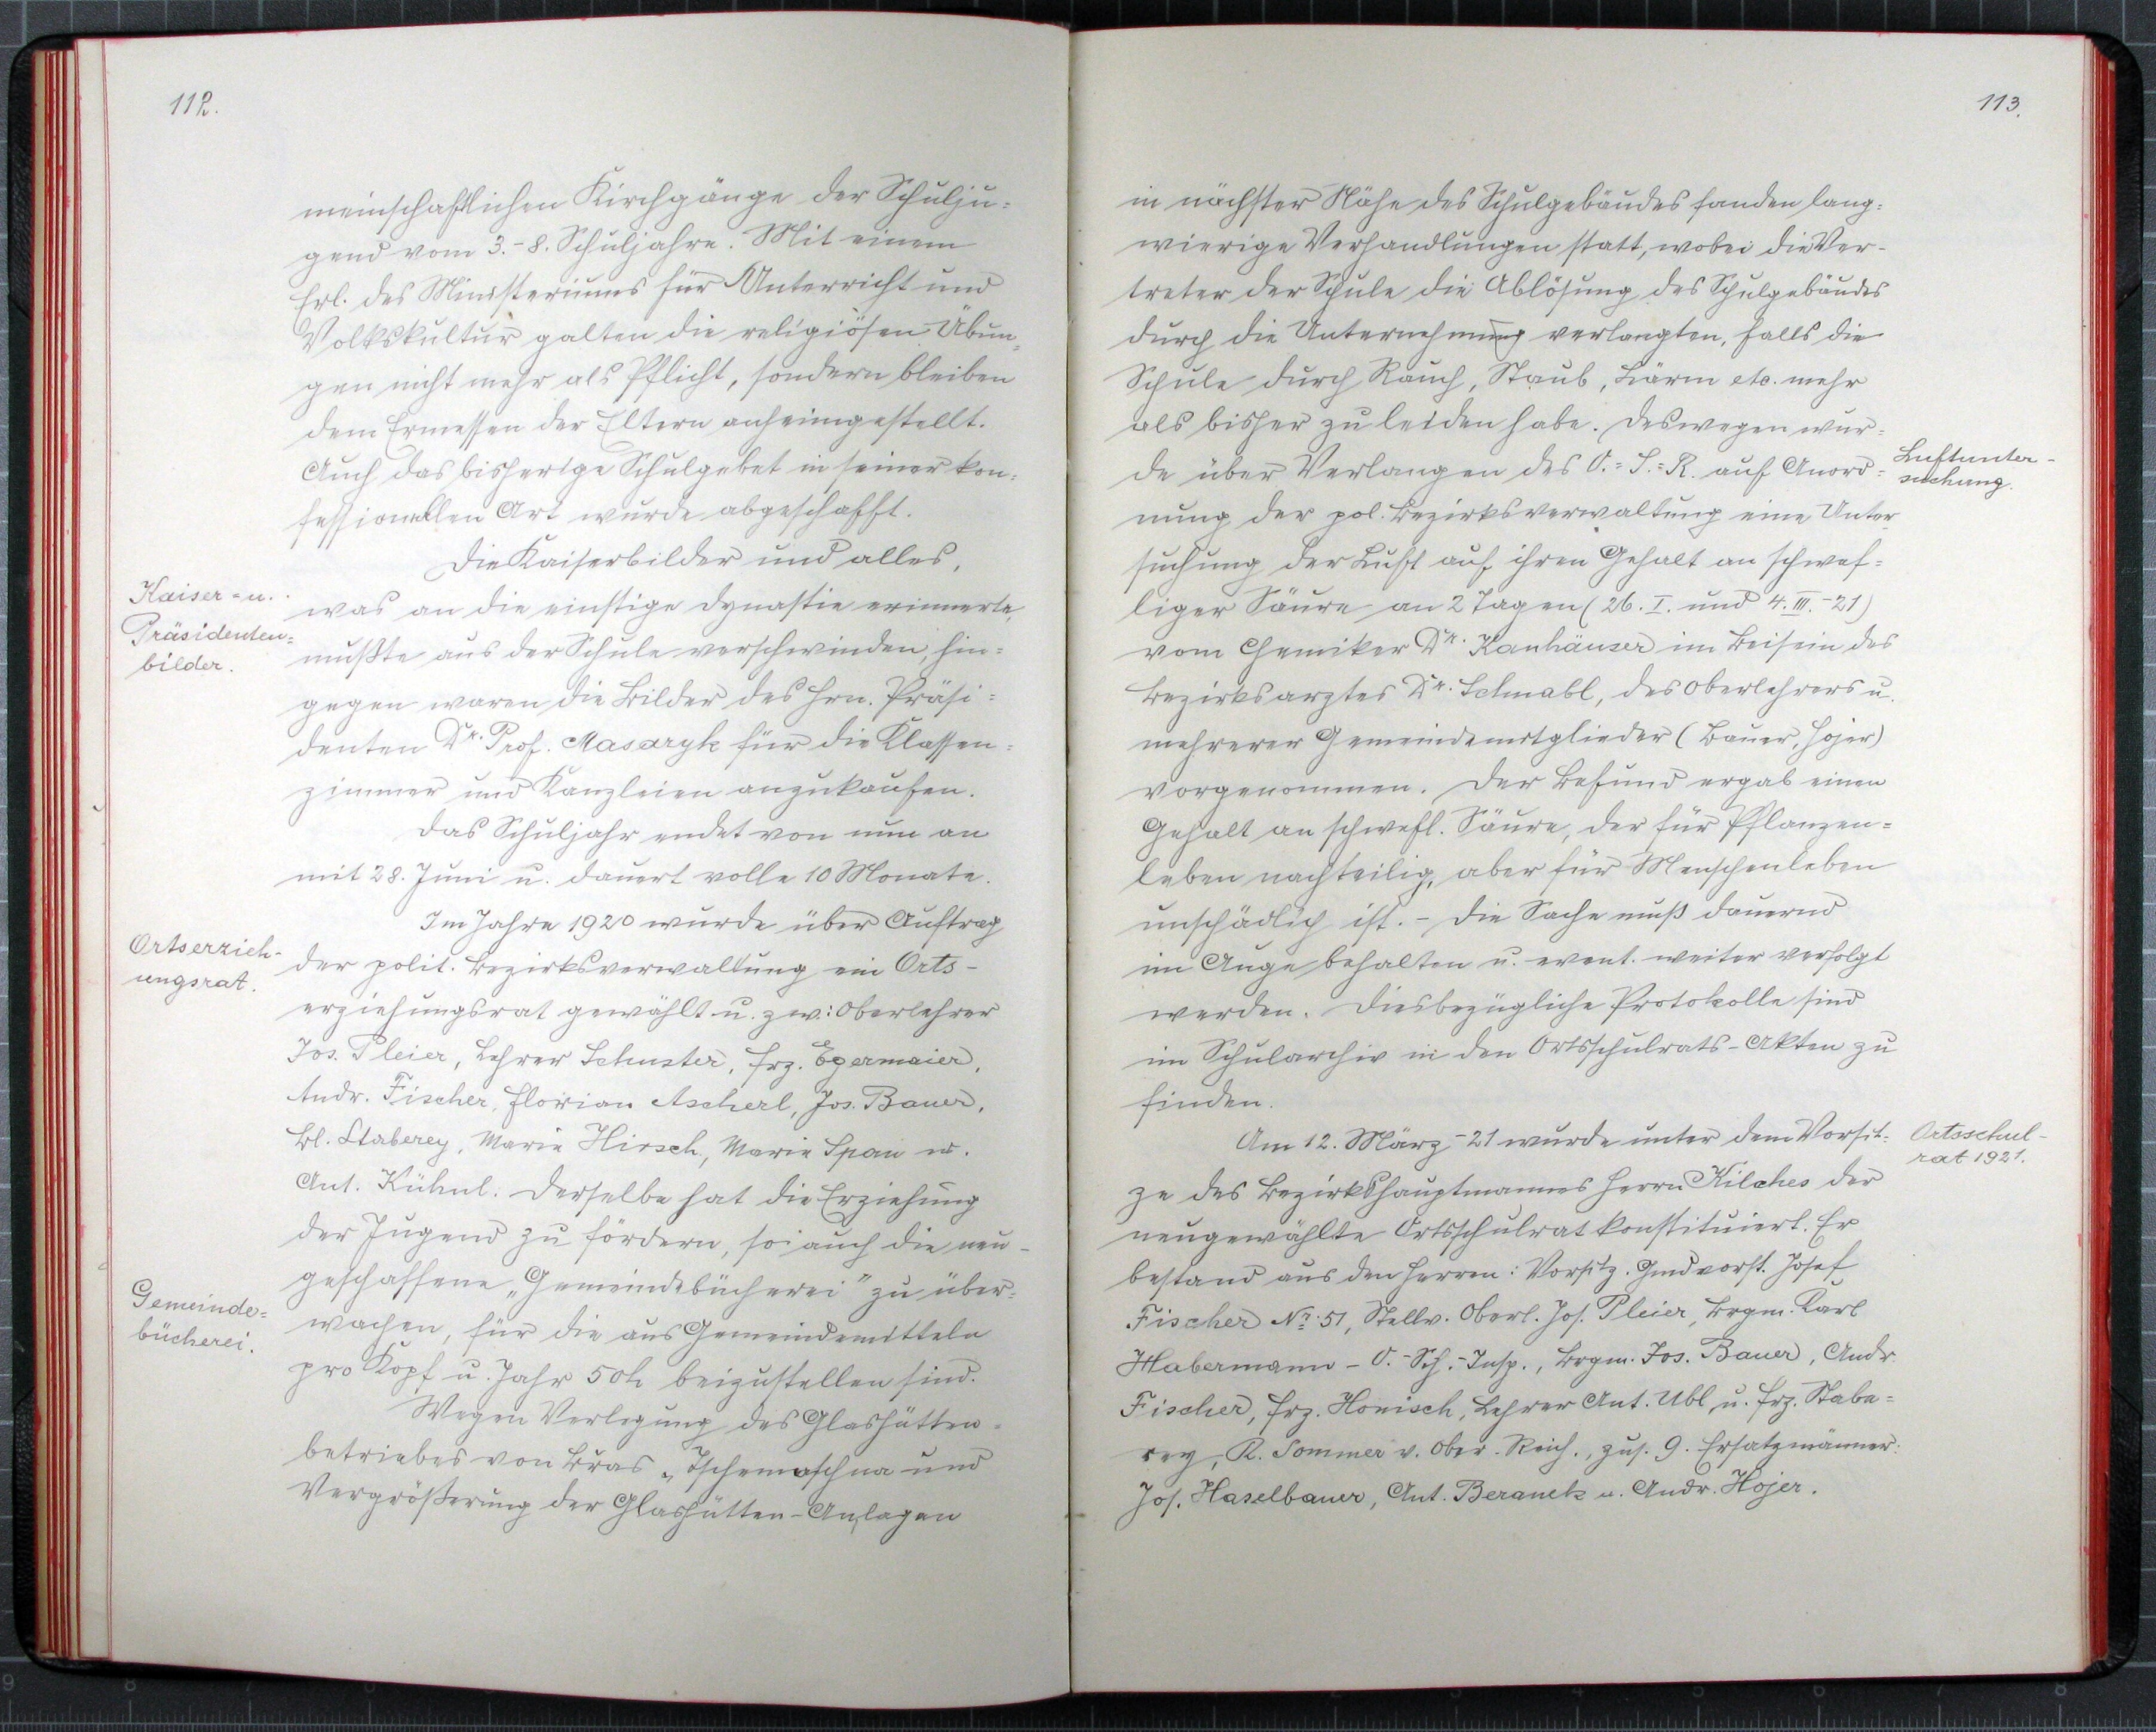 112.
meinschaftlichen Kirchgänge der Schulju-
gend vom 3.-8. Schuljahre. Mit einem
Erl. des Ministeriums für Unterricht und
Volkskultur galten die religiösen Übun-
gen nicht mehr als Pflicht, sondern bleiben
dem Ermessen der Eltern anheimgestellt.
Auch das bisherige Schulgebet in seiner kon-
fessionellen Art wurde abgeschafft.
Die Kaiserbilder und alles,
Kaiser- u.
Präsidenten-
bilder.
was an die einstige Dynastie erinnerte,
mußte aus der Schule verschwinden, hin-
gegen waren die Bilder des Hrn. Präsi-
denten Dr. Prof. Masaryk für die Klassen-
zimmer und Kanzleien anzukaufen.
Das Schuljahr endet von nun an
mit 28. Juni u. dauert volle 10 Monate.
Im Jahre 1920 wurde über Auftrag
Ortserzieh-
ungsrat.
der polit. Bezirksverwaltung ein Orts-
erziehungsrat gewählt u. zw.: Oberlehrer
Jos. Pleier, Lehrer Schuster, Frz. Egermaier,
Andr. Fischer, Florian Ascherl, Jos. Bauer,
Bl. Staberey, Marie Hirsch, Marie Span u.
Ant. Kühnl. Derselbe hat die Erziehung
der Jugend zu fördern, so auch die neu-
geschaffene „Gemeindebücherei" zu über-
Gemeinde-
bücherei.
wachen, für die aus Gemeindemitteln
pro Kopf u. Jahr 50h beizustellen sind.
Wegen Verlegung des Glashütten-
betriebes von Bras, Tschemoschna und
Vergrößerung der Glashütten-Anlagen
113.
in nächster Nähe des Schulgebäudes fanden lang-
wierige Verhandlungen statt, wobei die Ver-
treter der Schule die Ablösung des Schulgebäudes
durch die Unternehmung verlangten, falls die
Schule durch Rauch, Staub, Lärm etc. mehr
als bisher zu leiden habe. Deswegen wur-
de über Verlangen des O.-S.-R. auf Anord-
Luftunter-
suchung.
nung der pol. Bezirksverwaltung eine Unter
suchung der Luft auf ihren Gehalt an schwef-
liger Säure an 2 Tagen (26. I. und 4. III.-21)
vom Chemiker Dr. Kanhäuser im Beisein des
Bezirksarztes Dr. Schnabl, des Oberlehrers u.
mehrerer Gemeindemitglieder (Bauer, Hojer)
vorgenommen. Der Befund ergab einen
Gehalt an schwefl. Säure, der für Pflanzen-
leben nachteilig, aber für Menschenleben
unschädlich ist. - Die Sache muß dauernd
im Auge behalten u. event. weiter verfolgt
werden. Diesbezügliche Protokolle sind
im Schularchiv in den Ortsschulrats-Akten zu
finden.
Am 12. März -21 wurde unter dem Vorsit-
Ortsschul-
rat 1921.
ze des Bezirkshauptmannes Herrn Kilches der
neugewählte Ortsschulrat konstituiert. Er
bestand aus den Herren: Vorsitz. Gmdvorst. Josef
Fischer Nr. 51, Stellv. Oberl. Jos. Pleier, Brgm. Karl
Habermann - O.-Sch.-Insp., Brgm. Jos. Bauer, Andr.
Fischer, Frz. Honisch, Lehrer Ant. Ubl, u. Frz. Stabe-
rey, R. Sommer v. Ober-Reich., zus. 9. Ersatzmänner:
Jos. Haselbauer, Ant. Beranek u. Andr. Hojer.